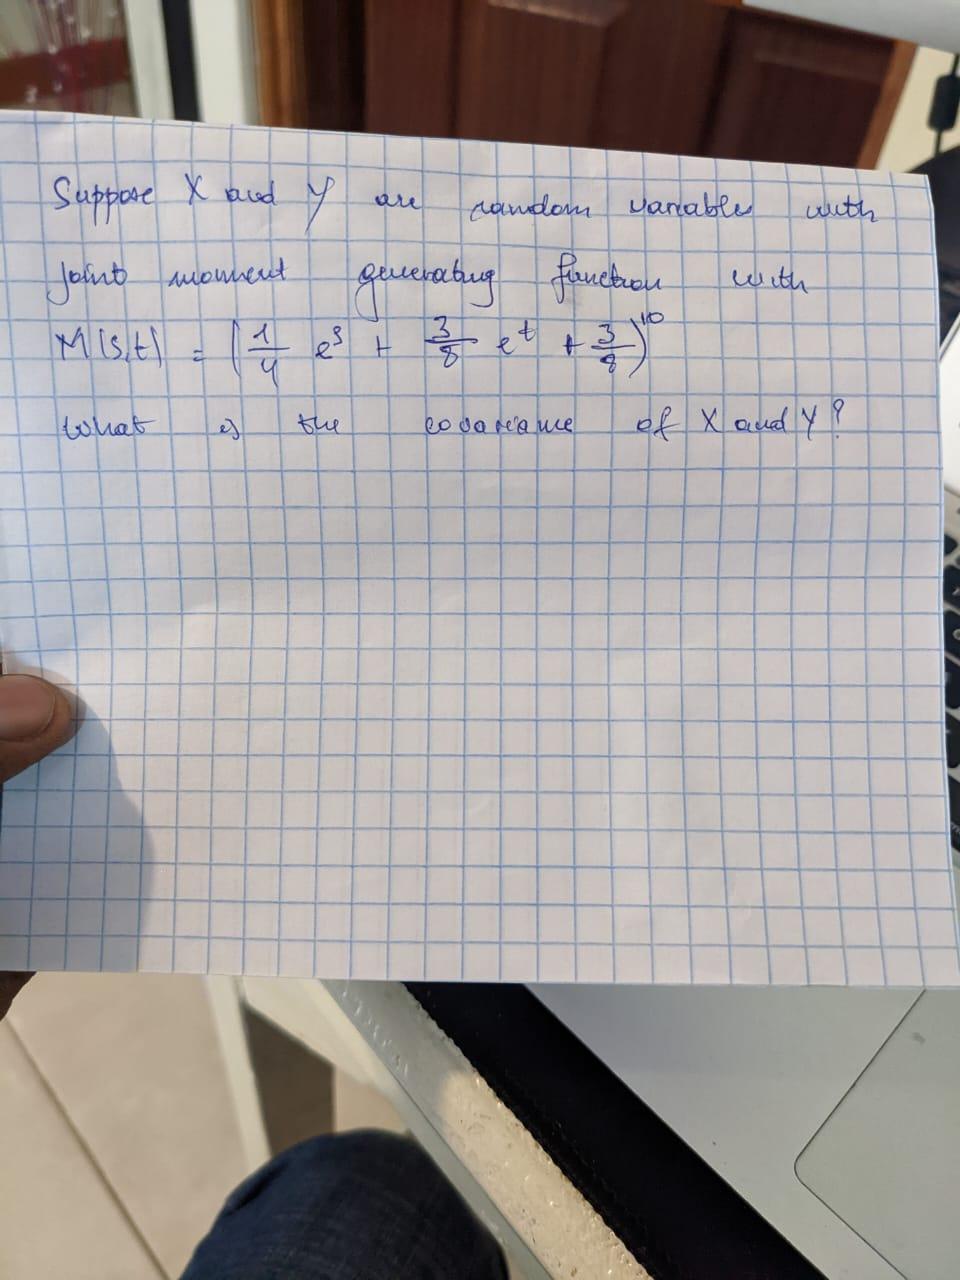 Suppose X and Y are random variables with
joint moment generating function with
M(s,t) = (1/4 e^s + 3/8 e^t + 3/8)^10
What is the covariance of X and Y?